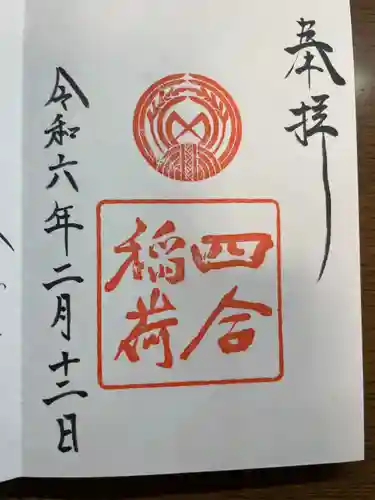 奉拝
四合
稲荷
令和六年二月十二日